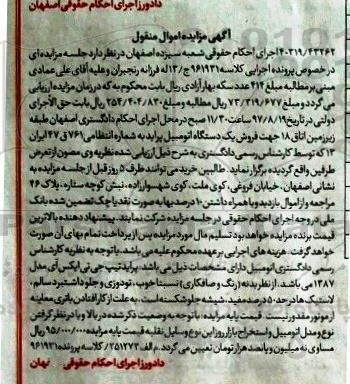 دادورز اجرای احکام حقوقی اصفهان
آگهی مزایده اموال منقول
۴۰۳۱۹/۴۳۲۶۲ اجرای احکام حقوقی شعبه سیزده اصفهان در نظر دارد جلسه مزایده ای
در خصوص پرونده اجرایی کلاسه ۹۶۱۹۳۱ ج/۱۳ له فرزانه رنجبران و علیه آقای علی عمادی
مبنی بر مطالبه مبلغ ۴۱۴ عدد سکه بهار آزادی ریال بابت محکوم به که در زمان مزایده ارزیابی
می گردد و مبلغ ۷۳/۳۱۹/۶۷۷ ریال مطالبه و مبلغ ۲۵۴/۴۰۴/۸۳۰ ریال بابت حق الاجرای
دولتی در تاریخ ۹۷/۸/۱۹ ساعت ۱۱/۳۰ صبح در محل اجرای احکام دادگستری اصفهان طبقه
زیرزمین اتاق ۱۸ جهت فروش یک دستگاه اتومبیل پراید به شماره انتظامی ۷۶۱ ق ۴۷ ایران
۱۳ که توسط کارشناس رسمی دادگستری به شرح ذیل ارزیابی شده نظریه وی مصون از تعرض
طرفین واقع گردیده برگزار نماید. طالبین خرید می توانند ظرف ۵ روز قبل از جلسه مزایده به
نشانی اصفهان، خیابان فروغی، کوی ملت، کوی شهسوارزاده، نبش کوچه ستاره، پلاک ۴۶
مراجعه و از اموال بازدید و با همراه داشتن ۱۰ درصد بها به صورت نقد یا چک تضمین شده بانک
ملی در وجه اجرای احکام حقوقی در جلسه مزایده شرکت نمایند. پیشنهاد دهنده بالاترین
قیمت برنده مزایده خواهد بود تسلیم مال مورد مزایده پس از پرداخت تمام بهای آن صورت
خواهد گرفت. هزینه های اجرایی بر عهده محکوم علیه می باشد. با توجه به نظریه کارشناس
رسمی دادگستری اتومبیل دارای مشخصات ذیل می باشد. پراید تیپ جی تی ایکس آی مدل
۱۳۸۷ می باشد. از نظر بدنه (رنگ و صافکاری) نسبتا خوب، تودوزی و جلو داشتبرد سالم،
لاستیک ها در حد ۵۰ درصد مفید. شیشه جلو شکسته است. به علت از کار افتادن باتری معاینه
از موتور مقدور نیست. قیمت پایه مزایده: با توجه به وضعیت ذکر شده در بالا و با در نظر گرفتن
نوع و مدل اتومبیل و استخراج بازار روز این نوع وسایل نقلیه قیمت پایه مزایده ۹۵/۰۰۰/۰۰۰ ریال
مساوی نه میلیون و پانصد هزار تومان تعیین می گردد. م الف: ۲۵۱۲۷۳/ کلاسه پرونده ۹۶۱۹۳۱
دادورز اجرای احکام حقوقی